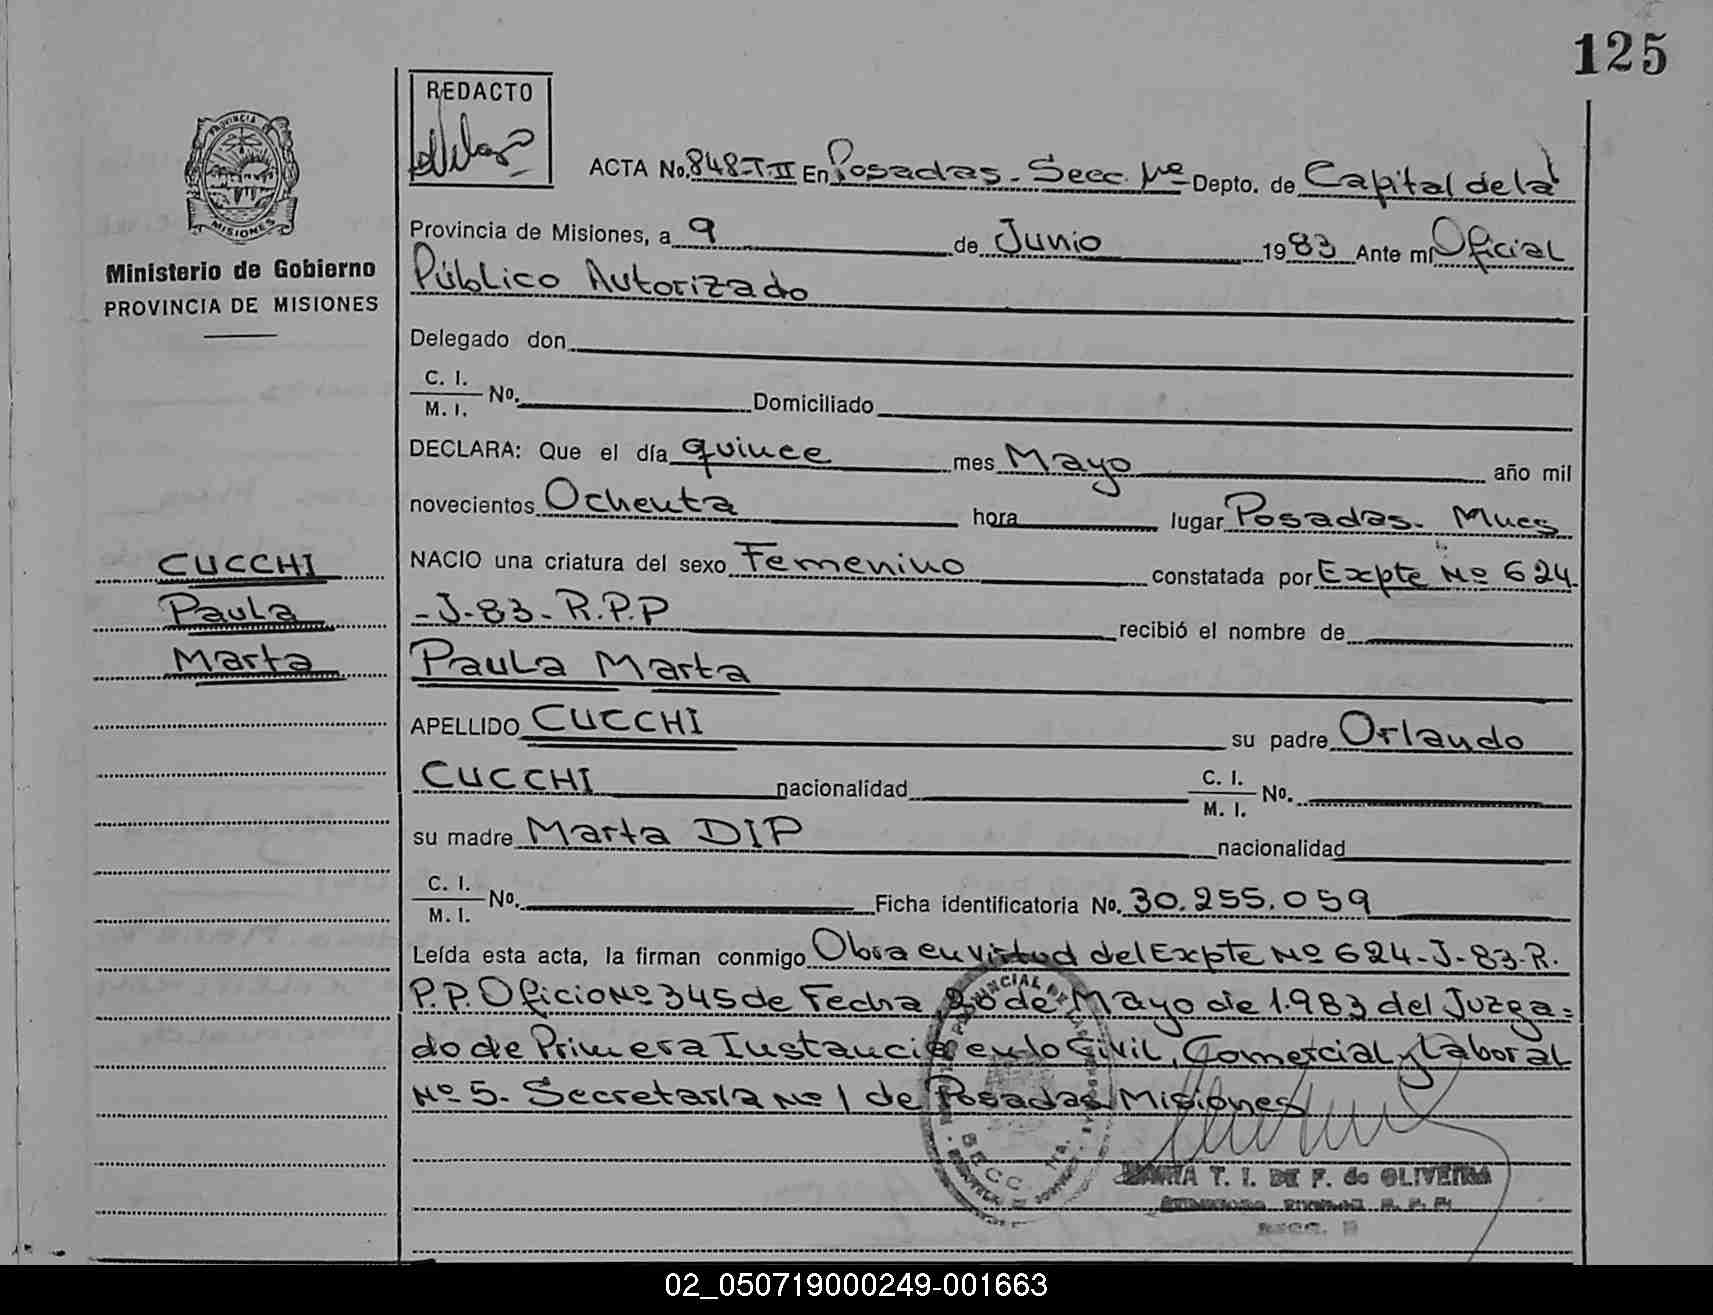 125
REDACTO
PROVINCIA DE
MISIONES
Ministerio de Gobierno
PROVINCIA DE MISIONES
CUCCHI
Paula
Marta
ACTA No. 848-T-II En Posadas. Secc. Nº Depto. de Capital de la
Provincia de Misiones, a 9 de Junio 1983 Ante mí Oficial
Público Autorizado
Delegado don
C. I.
M. I. No. Domiciliado
DECLARA: Que el día quince mes Mayo año mil
novecientos Ochenta hora lugar Posadas. Mnes
NACIO una criatura del sexo Femenino constatada por Expte Nº 624
-J-83-R.P.P recibió el nombre de
Paula Marta
APELLIDO CUCCHI su padre Orlando
CUCCHI nacionalidad C. I.
M. I. No.
su madre Marta DIP nacionalidad
C. I.
M. I. No. Ficha identificatoria No. 30.255.059
Leída esta acta, la firman conmigo Obra en virtud del Expte Nº 624-J-83-R.
P.P. Oficio Nº 345 de Fecha 20 de Mayo de 1.983 del Juzga=
do de Primera Instancia en lo Civil, Comercial y Laboral
Nº 5. Secretaría Nº 1 de Posadas Misiones
MARIA T. I. DE F. de OLIVEIRA
02_050719000249-001663